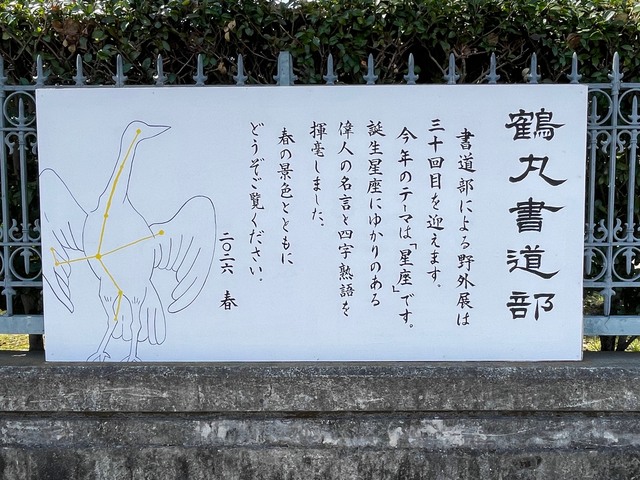 鶴丸書道部
書道部による野外展は
三十回目を迎えます.
今年のテーマは「星座」です。
誕生星座にゆかりのある
偉人の名言と四字熟語を
揮毫しました.
春の景色とともに
どうぞご覧ください.
二〇二六 春